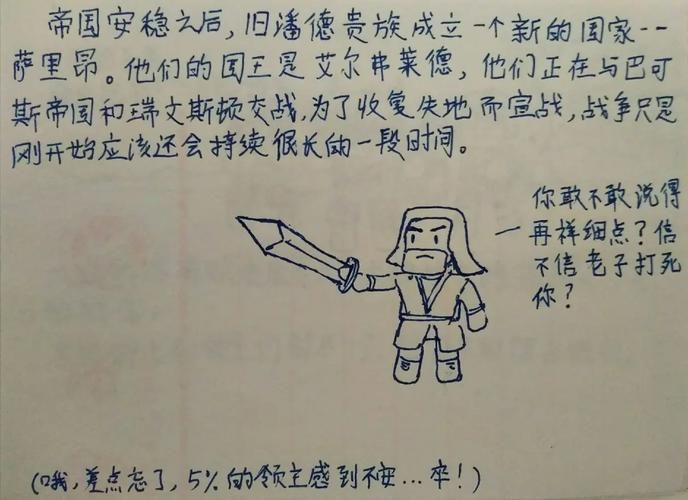 帝国安稳之后,旧潘德贵族成立一个新的国家--
萨里昂。他们的国王是艾尔弗莱德,他们正在与巴可
斯帝国和瑞文斯顿交战,为了收复失地而宣战,战争只是
刚开始应该还会持续很长的一段时间。
你敢不敢说得
一再样细点?信
不信老子打死
你?
(哦,差点忘了,5%的领主感到不安...卒!)